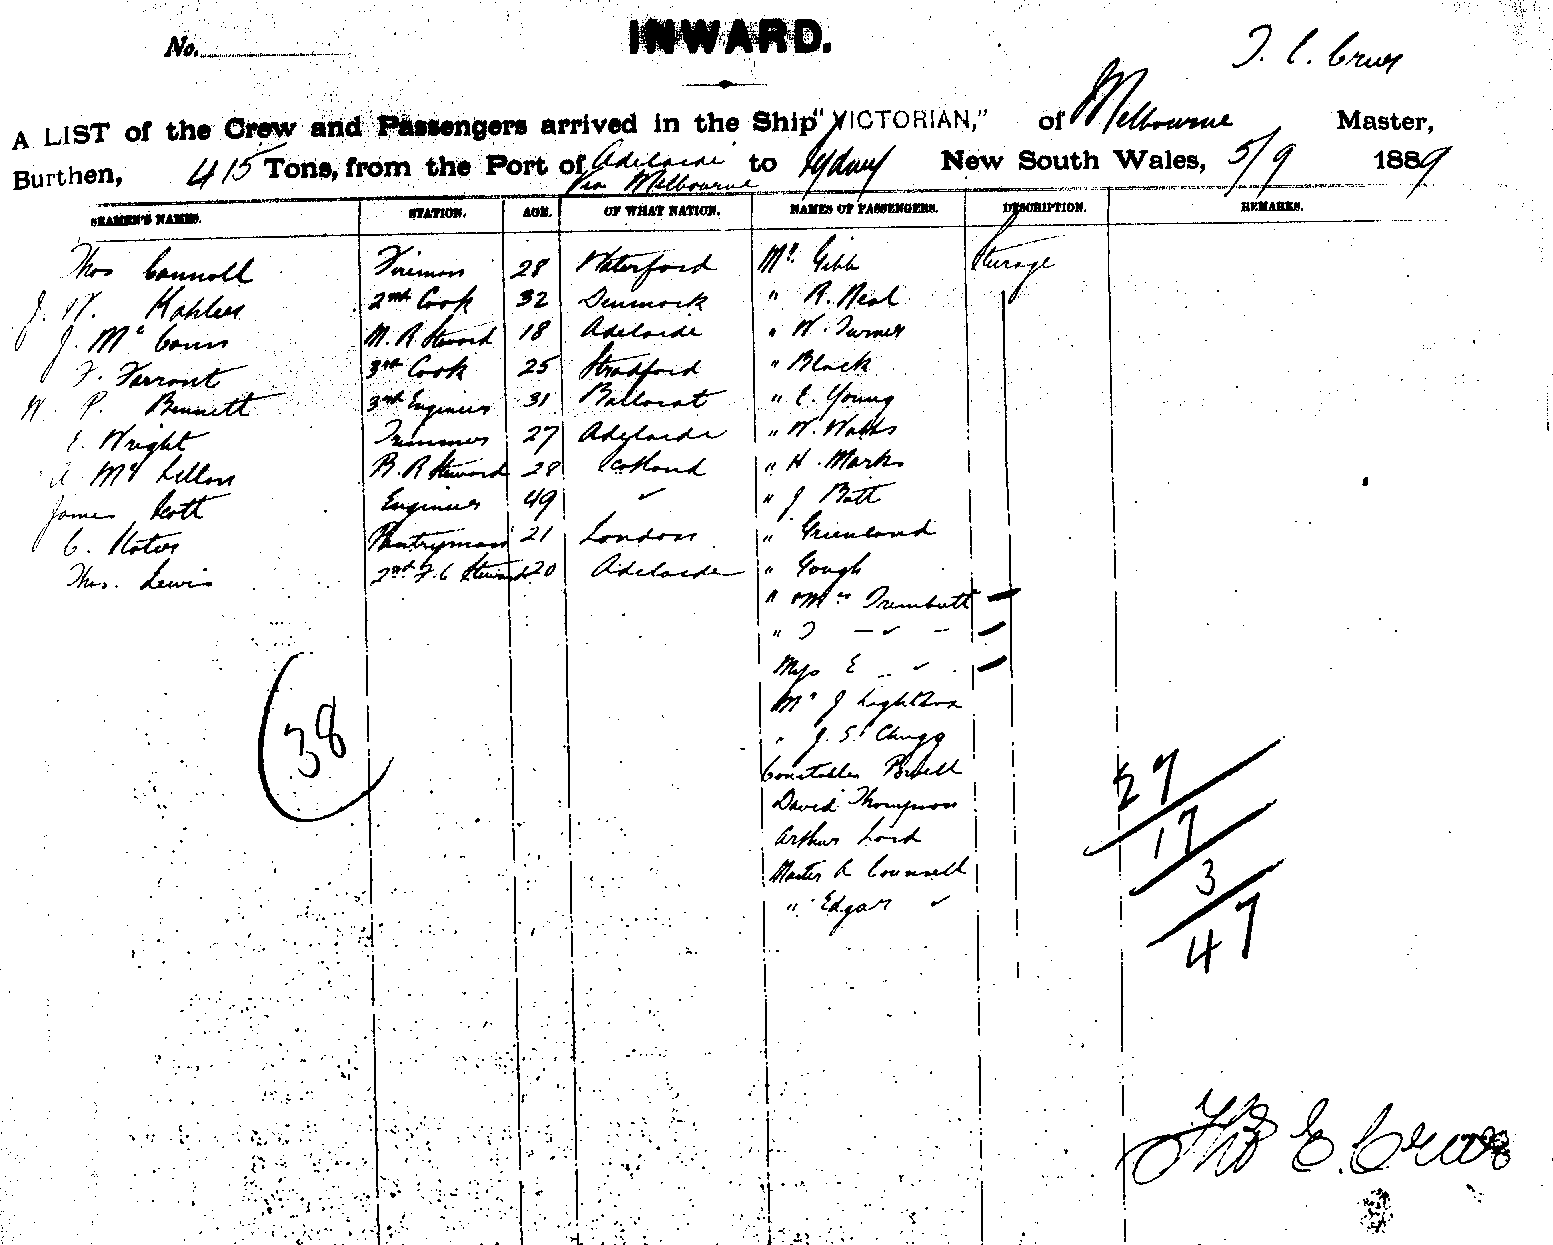 No.
INWARD.
A LIST of the Crew and Passengers arrived in the Ship "VICTORIAN," of Melbourne Master,
Burthen, 415 Tons, from the Port of Adelaide to Sydney New South Wales, 5/9 1889
Via Melbourne
SEAMEN'S NAMES. STATION. AGE. OF WHAT NATION. NAMES OF PASSENGERS. DESCRIPTION. REMARKS.
Thos Connell Fireman 28 Waterford Mr. Gibb Steerage
J. W. 2nd Cook 32 Denmark " R. Neal
J. Mc 18 Adelaide " W. Turner
F. Farrant 3rd Cook 25 Stradford " Black
W. P. Bennett 3rd Engineer 31 Ballarat " E. Young
E. Wright Trimmer 27 Adelaide " W. Watts
A. Mc Lellan B. R Steward 28 Scotland " H. Marks
James Scott Engineer 49 " " J Batt
C. Pantryman 21 London " Greenland
Thos. Lewis 2nd F. C Steward 20 Adelaide " Gough
" & Mrs
"
Miss E
Mr J
" J. S.
David Thompson
Arthur Lord
Master A Counsell
" Edgar "
(38
27
17
3
47
Thos E.